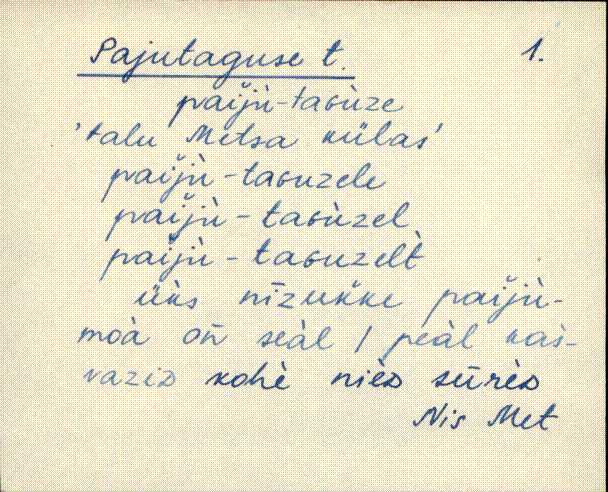 Pajutaguse t. 1.
paiǰù-taɢùze
'talu Metsa külas'
paiǰù-taɢuzele
paiǰù-taɢùzel
paiǰù-taɢuzelt̀
üks nīzukke paiǰù-
moà oñ seàl / peàl kaš-
vaziᴅ kohè nièᴅ sūrèᴅ
Nis Met